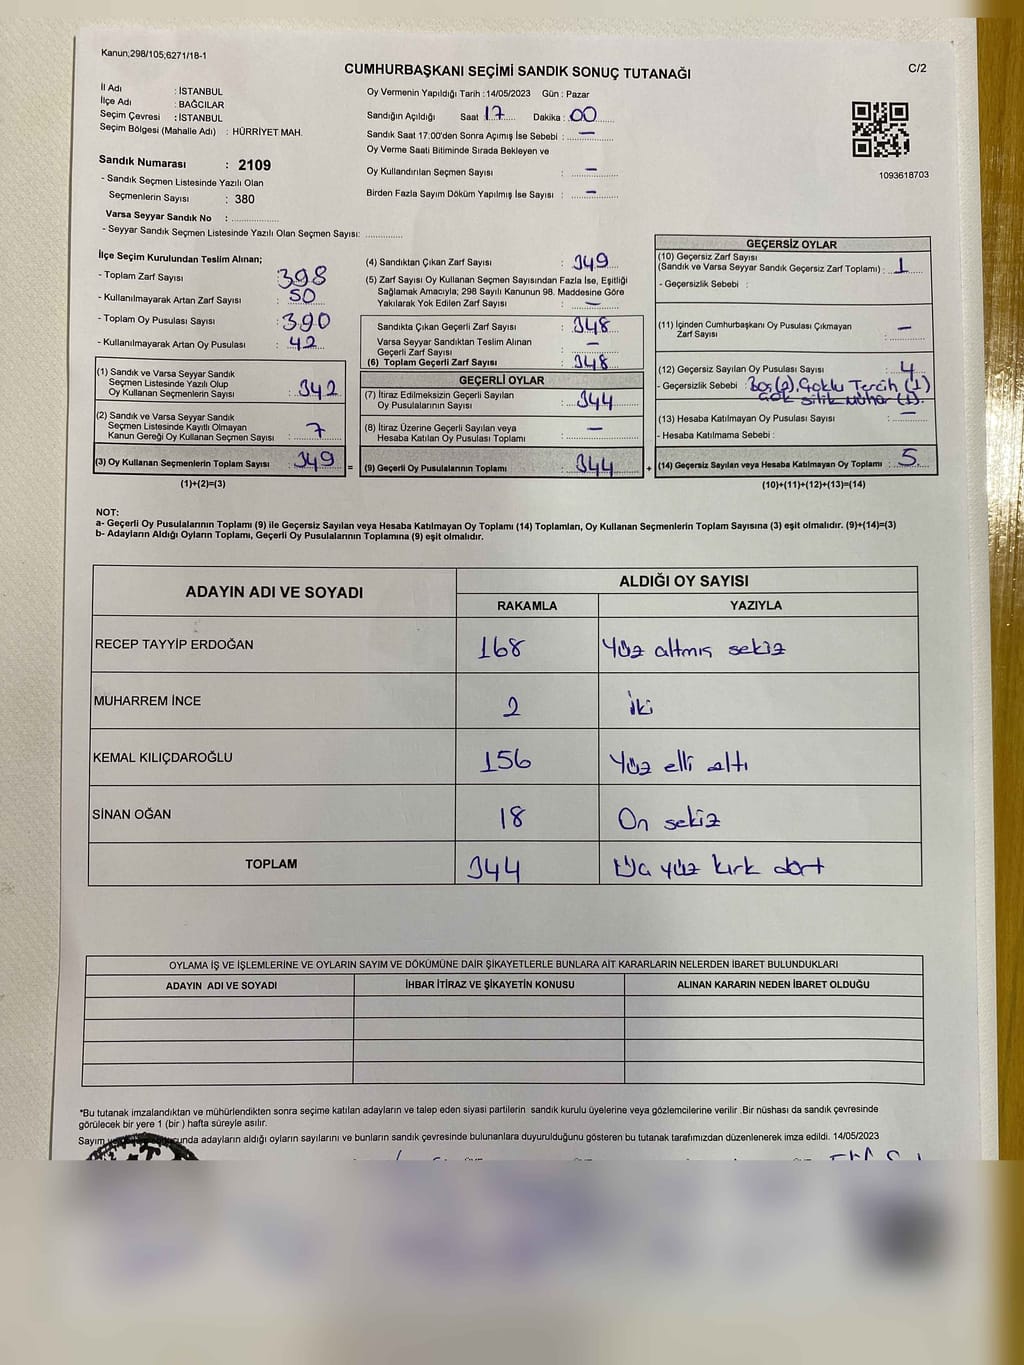 Kanun;298/105;6271/18-1
CUMHURBAŞKANI SEÇİMİ SANDIK SONUÇ TUTANAĞI
C/2
İl Adı : İSTANBUL
İlçe Adı : BAĞCILAR
Seçim Çevresi : İSTANBUL
Seçim Bölgesi (Mahalle Adı) : HÜRRİYET MAH.
Sandık Numarası : 2109
- Sandık Seçmen Listesinde Yazılı Olan
Seçmenlerin Sayısı : 380
Varsa Seyyar Sandık No : ................
- Seyyar Sandık Seçmen Listesinde Yazılı Olan Seçmen Sayısı: ............
Oy Vermenin Yapıldığı Tarih :14/05/2023 Gün : Pazar
Sandığın Açıldığı Saat 17 Dakika : 00
Sandık Saat 17:00'den Sonra Açımış İse Sebebi : —
Oy Verme Saati Bitiminde Sırada Bekleyen ve
Oy Kullandırılan Seçmen Sayısı : —
Birden Fazla Sayım Döküm Yapılmış İse Sayısı : —
1093618703
İlçe Seçim Kurulundan Teslim Alınan;
- Toplam Zarf Sayısı : 398
- Kullanılmayarak Artan Zarf Sayısı : 50
- Toplam Oy Pusulası Sayısı : 390
- Kullanılmayarak Artan Oy Pusulası : 42
(1) Sandık ve Varsa Seyyar Sandık
Seçmen Listesinde Yazılı Olup
Oy Kullanan Seçmenlerin Sayısı : 342
(2) Sandık ve Varsa Seyyar Sandık
Seçmen Listesinde Kayıtlı Olmayan
Kanun Gereği Oy Kullanan Seçmen Sayısı : 7
(3) Oy Kullanan Seçmenlerin Toplam Sayısı : 349 =
(1)+(2)=(3)
(4) Sandıktan Çıkan Zarf Sayısı : 349
(5) Zarf Sayısı Oy Kullanan Seçmen Sayısından Fazla İse, Eşitliği
Sağlamak Amacıyla; 298 Sayılı Kanunun 98. Maddesine Göre
Yakılarak Yok Edilen Zarf Sayısı : —
Sandıkta Çıkan Geçerli Zarf Sayısı : 348
Varsa Seyyar Sandıktan Teslim Alınan
Geçerli Zarf Sayısı : —
(6) Toplam Geçerli Zarf Sayısı : 348
GEÇERLİ OYLAR
(7) İtiraz Edilmeksizin Geçerli Sayılan
Oy Pusulalarının Sayısı : 344
(8) İtiraz Üzerine Geçerli Sayılan veya
Hesaba Katılan Oy Pusulaları Toplamı : —
(9) Geçerli Oy Pusulalarının Toplamı : 344 +
GEÇERSİZ OYLAR
(10) Geçersiz Zarf Sayısı
(Sandık ve Varsa Seyyar Sandık Geçersiz Zarf Toplamı) : 1
- Geçersizlik Sebebi :
(11) İçinden Cumhurbaşkanı Oy Pusulası Çıkmayan
Zarf Sayısı : —
(12) Geçersiz Sayılan Oy Pusulası Sayısı : 4
- Geçersizlik Sebebi : Boş(2), Çoklu Tercih (1)
Çok silik Mühür (1).
(13) Hesaba Katılmayan Oy Pusulası Sayısı : —
- Hesaba Katılmama Sebebi :
(14) Geçersiz Sayılan veya Hesaba Katılmayan Oy Toplamı : 5
(10)+(11)+(12)+(13)=(14)
NOT:
a- Geçerli Oy Pusulalarının Toplamı (9) ile Geçersiz Sayılan veya Hesaba Katılmayan Oy Toplamı (14) Toplamları, Oy Kullanan Seçmenlerin Toplam Sayısına (3) eşit olmalıdır. (9)+(14)=(3)
b- Adayların Aldığı Oyların Toplamı, Geçerli Oy Pusulalarının Toplamına (9) eşit olmalıdır.
ADAYIN ADI VE SOYADI ALDIĞI OY SAYISI
RAKAMLA YAZIYLA
RECEP TAYYİP ERDOĞAN 168 Yüz altmış sekiz
MUHARREM İNCE 2 iki
KEMAL KILIÇDAROĞLU 156 Yüz elli altı
SİNAN OĞAN 18 On sekiz
TOPLAM 344 yüz kırk dört
OYLAMA İŞ VE İŞLEMLERİNE VE OYLARIN SAYIM VE DÖKÜMÜNE DAİR ŞİKAYETLERLE BUNLARA AİT KARARLARIN NELERDEN İBARET BULUNDUKLARI
ADAYIN ADI VE SOYADI İHBAR İTİRAZ VE ŞİKAYETİN KONUSU ALINAN KARARIN NEDEN İBARET OLDUĞU
*Bu tutanak imzalandıktan ve mühürlendikten sonra seçime katılan adayların ve talep eden siyasi partilerin sandık kurulu üyelerine veya gözlemcilerine verilir .Bir nüshası da sandık çevresinde
görülecek bir yere 1 (bir ) hafta süreyle asılır.
Sayım adayların aldığı oyların sayılarını ve bunların sandık çevresinde bulunanlara duyurulduğunu gösteren bu tutanak tarafımızdan düzenlenerek imza edildi. 14/05/2023